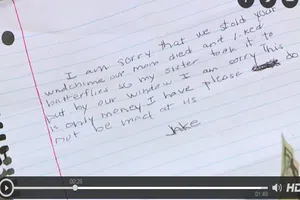 I am sorry that we stold your
windchime our mom died an't liked
butterflies so my sister took it to
put by our window I am sorry This
is only money I have please do
not be mad at us
Jake
00:26
01:48
HD